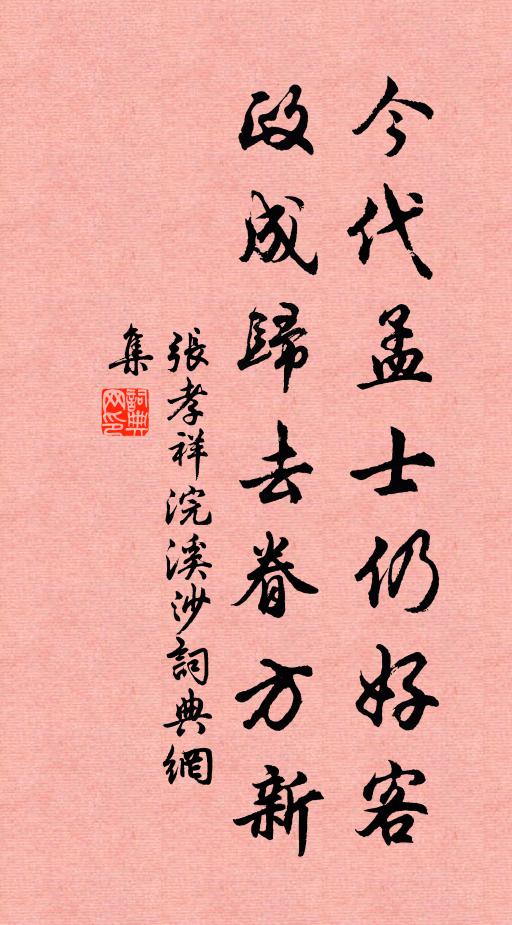 今代孟士仍好客
政成歸去眷方新
張孝祥浣溪沙詞典網
集
詞典網印